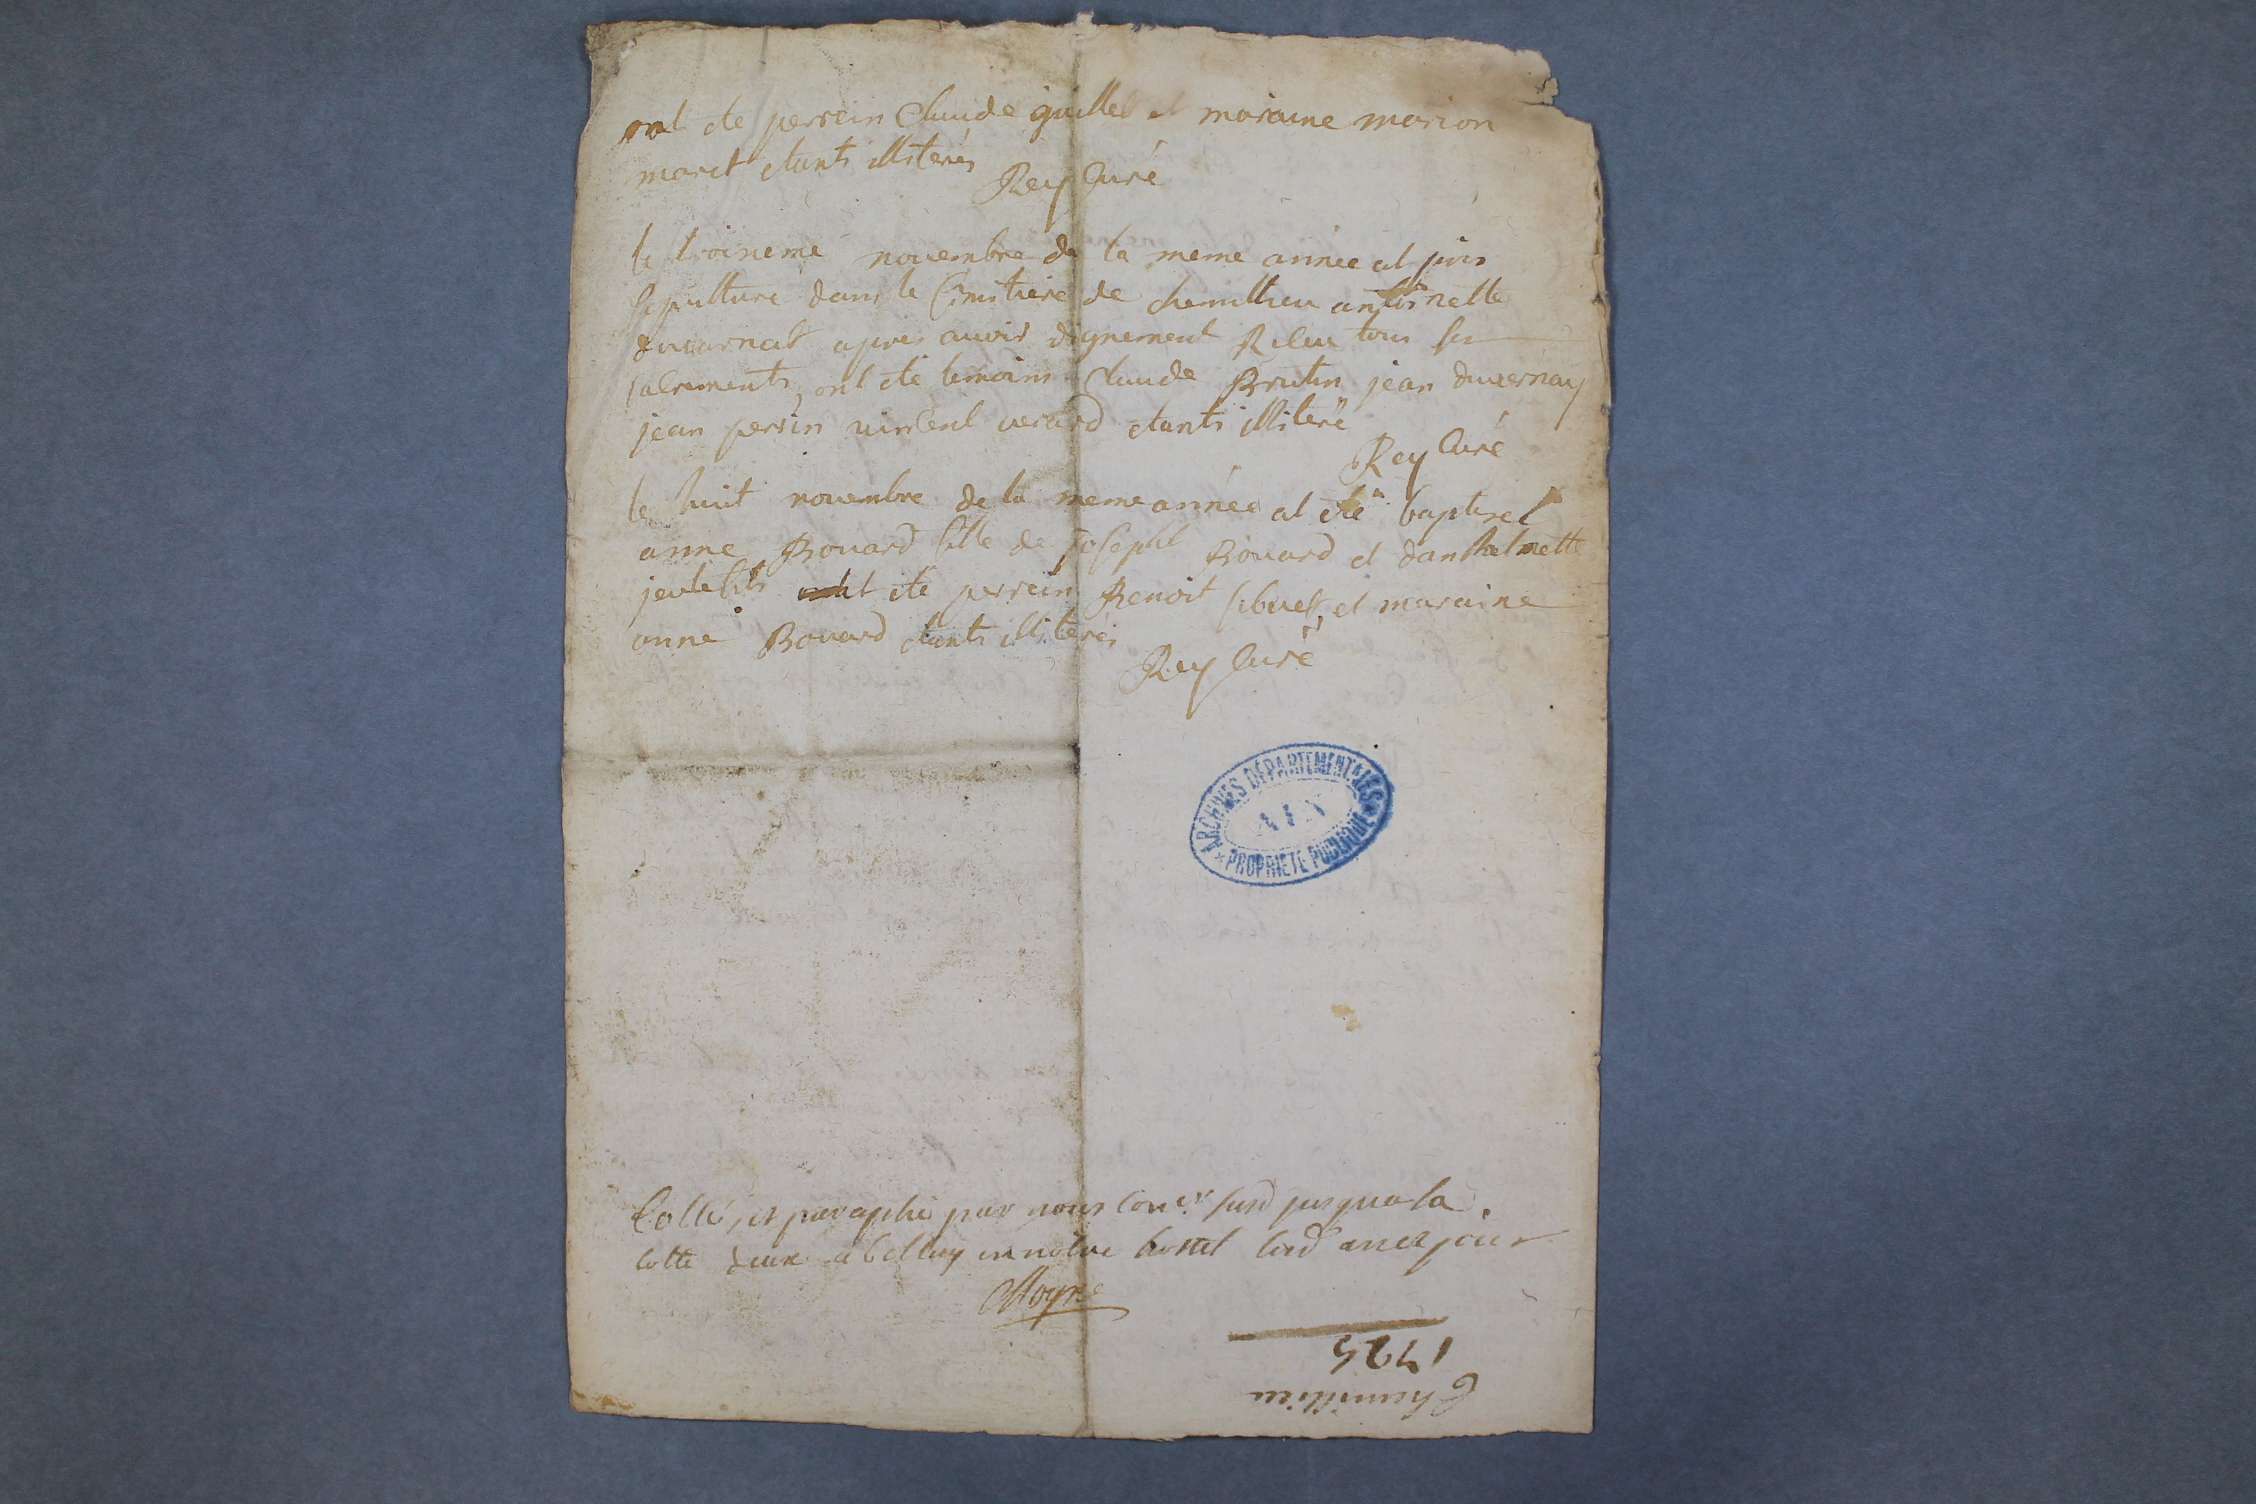 ont ete perrein Claude guillet et moraine marion
maret etants illiterés
Rey Curé
le troineme novembre de la meme année at pris
sepulture dans le Cimitiere de chemillieu antoinette
duvarnat apres avoir dignement Receu tous ses
sacrements, ont ete temoins Claude Brutin jean duvernay
jean perrin vincent verard etants illiteré
Rey Curé
le huit novembre de la meme année at ete baptisèe
anne Bouard fille de Joseph Bouard et danthelmette
ont ete perrein Benoit sibuet, et maraine
anne Bouard etants illiterés
Rey Curé
ARCHIVES DÉPARTEMENTALES
AIN
PROPRIÉTÉ PUBLIQUE
Cotté, et paraphé par nous Coner susd jusqua la
cotte deux a belley en notre hostel lesd an et jour
Moyne
1725
Chemillieu